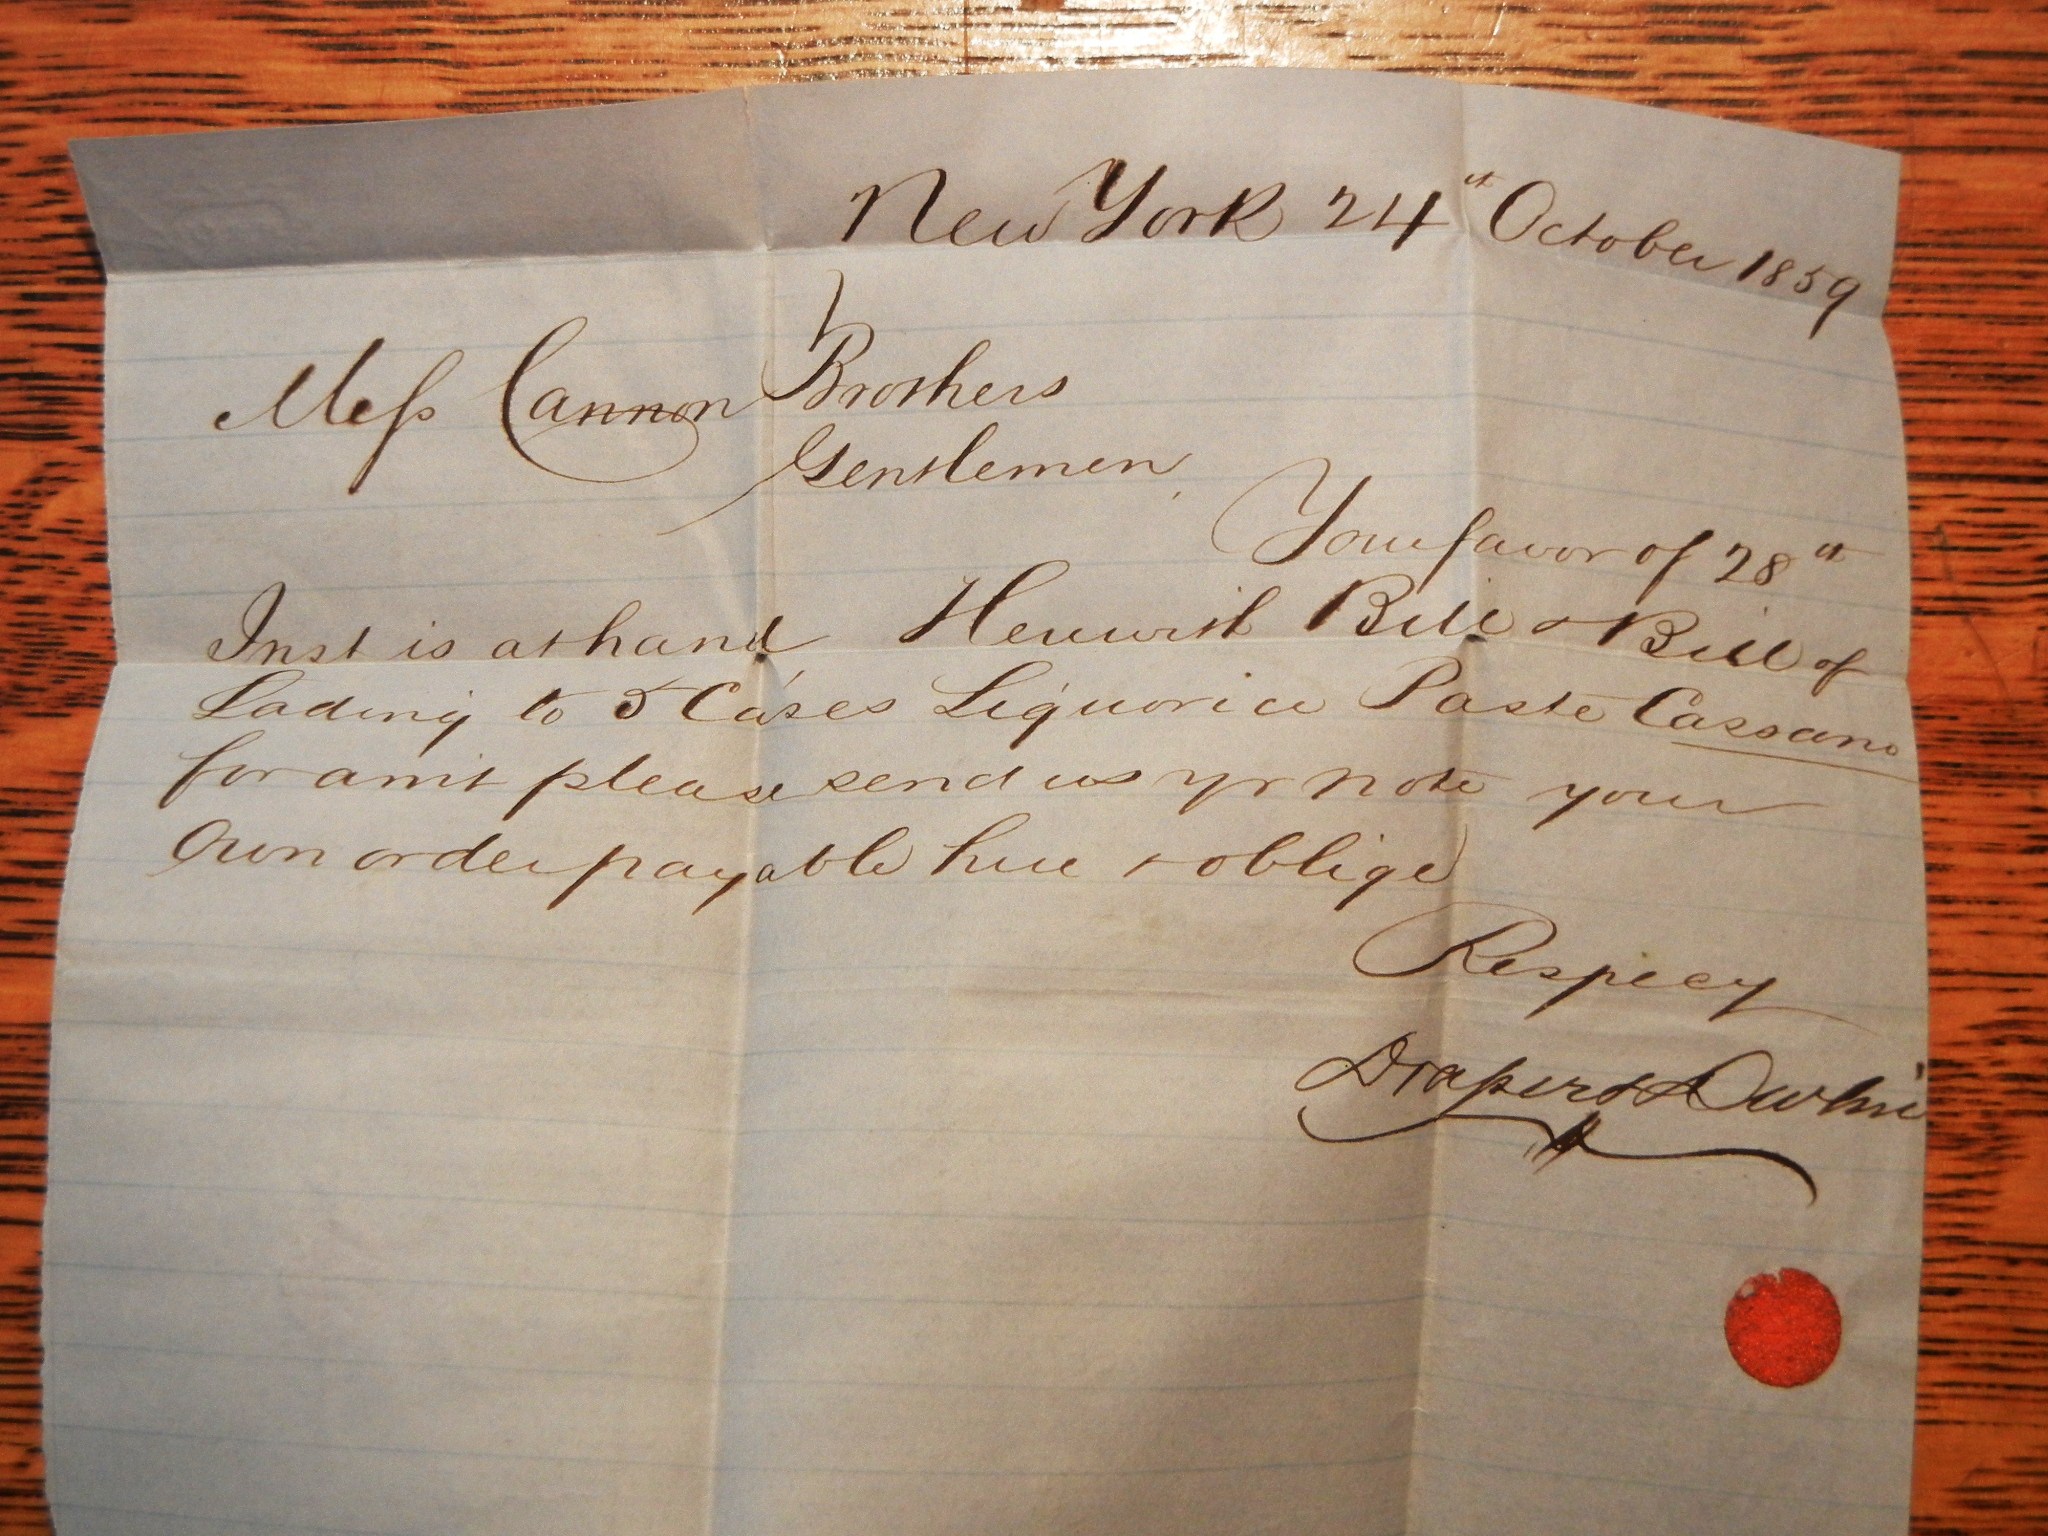 New York 24th October 1859
Mess Cannon Brothers
Gentlemen,
Your favor of 28th
Inst is at hand Herewith Bill & Bill of
Lading to 5 Cases Liquorice Paste Cassano
for amt please send us yr note your
own order payable here & oblige
Respecy
Drapers &